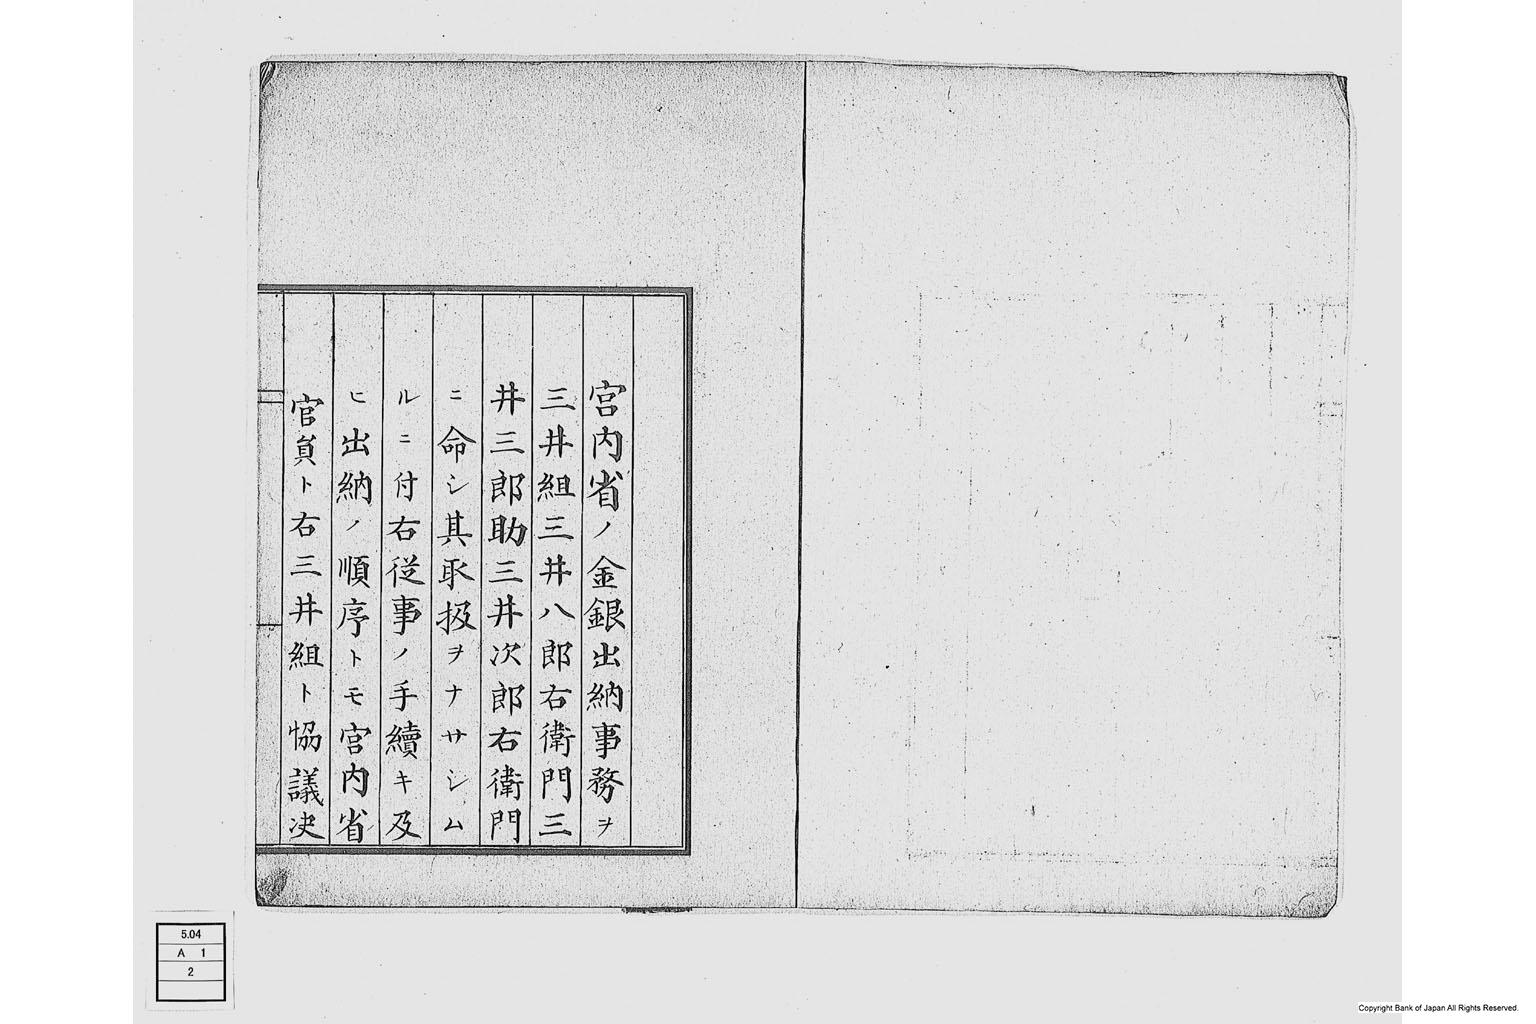 宮内省ノ金銀出納事務ヲ
三井組三井八郎右衛門三
井三郎助三井次郎右衛門
ニ命シ其取扱ヲナサシム
ルニ付右従事ノ手續キ及
ヒ出納ノ順序トモ宮内省
官員ト右三井組ト恊議决
5.04
A 1
2
Copyright Bank of Japan All Rights Reserved.